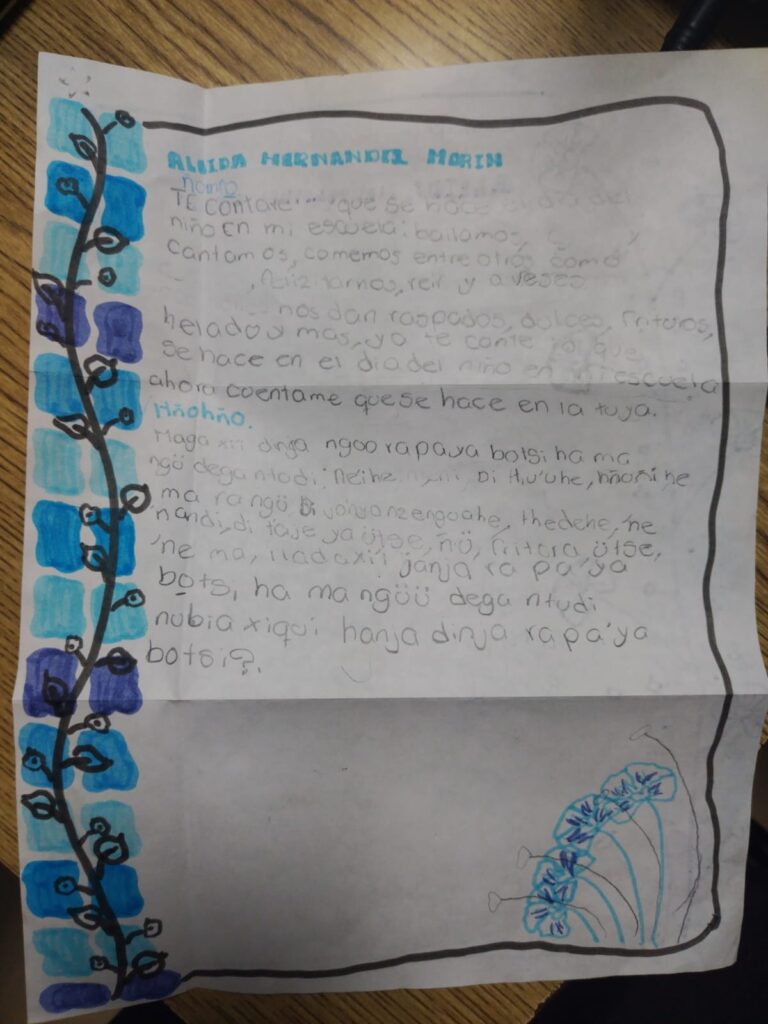 ALEIDA HERNANDEZ MORIN
TE contare que se hace el dia del
niño en mi escuela: bailamos, y
cantamos, comemos entre otros como
, reir y aveses
nos dan raspados, dulces, frituras,
helado y mas, ya te conte lo que
se hace en el dia del niño en mi escuela
ahora coentame que se hace en la tuya.
Hñohño.
Haga xii dinja ngoo rapaya botsi ha ma
ngü dega ntudi: Neihe, Di Hu'uhe, hñoñi ne
ma rangü Di yonyanzengoahe, thedehe, 'ne
nandi, di taje ya ütse, ñü, fritora ütse,
'ne ma, janja ra pa'ya
botsi ha ma ngüü dega ntudi
nubia xiqui hanja dinja rapa'ya
botsi?.